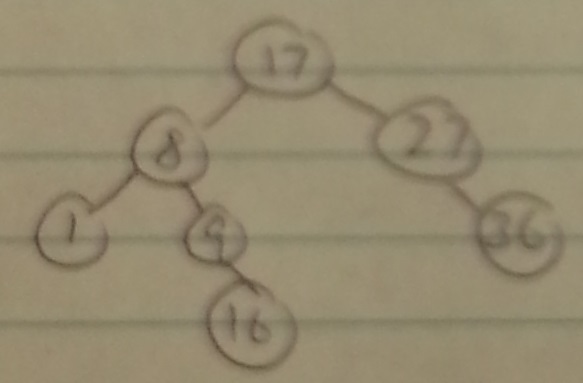 17
8 27
1 9 36
16